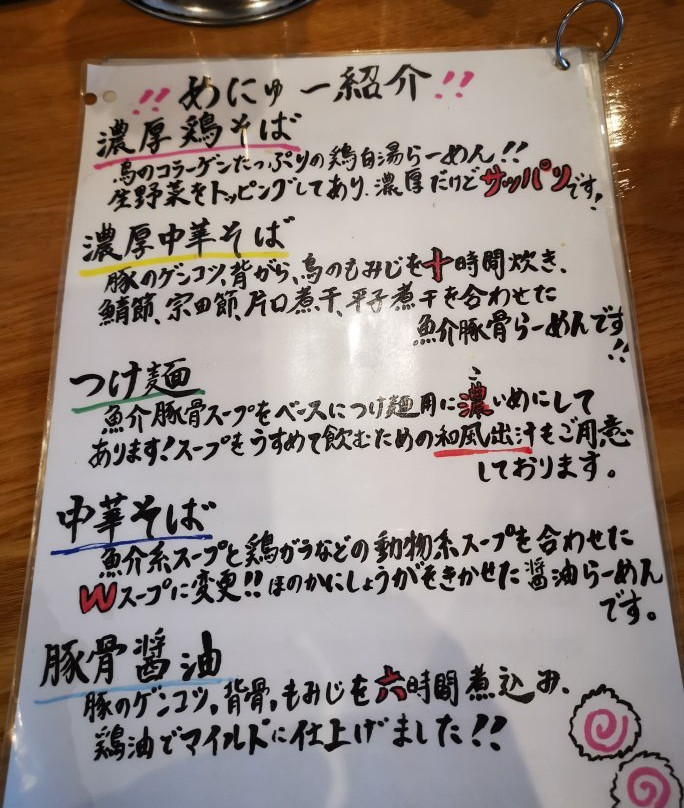 !! めにゅー紹介 !!
濃厚鶏そば
鳥のコラーゲンたっぷりの鶏白湯らーめん!!
生野菜をトッピングしてあり、濃厚だけどサッパリです!
濃厚中華そば
豚のゲンコツ、背がら、鳥のもみじを十時間炊き、
鯖節、宗田節、片口煮干、平子煮干を合わせた
魚介豚骨らーめんです!!
つけ麺
魚介豚骨スープをベースにつけ麺用に濃いめにして
こ
あります!スープをうすめて飲むための和風出汁もご用意
しております。
中華そば
魚介系スープと鶏ガラなどの動物系スープを合わせた
Wスープに変更!!ほのかにしょうがをきかせた醤油らーめん
です。
豚骨醤油
豚のゲンコツ、背骨、もみじを六時間煮込み、
鶏油でマイルドに仕上げました!!